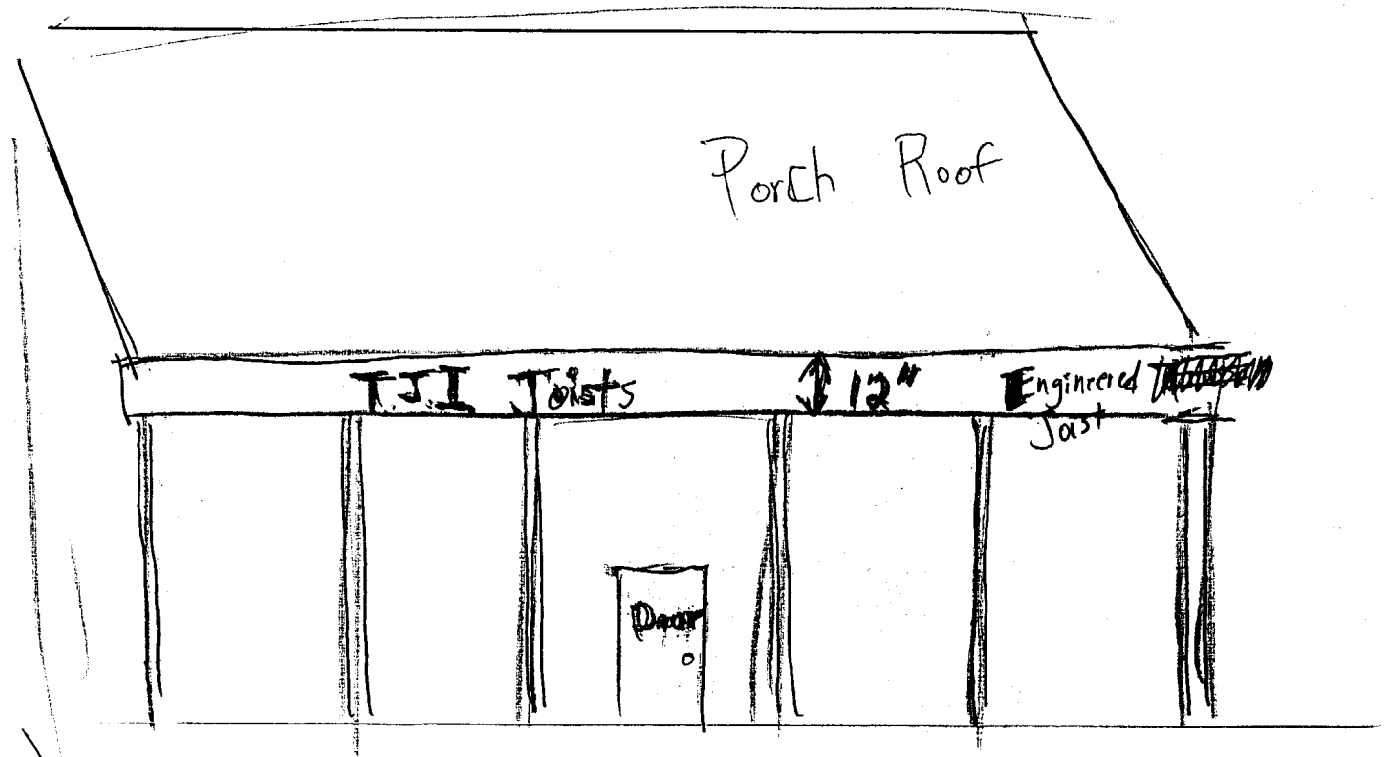 Porch Roof
T.J.I Joists 12" Engineered
Joist
Door